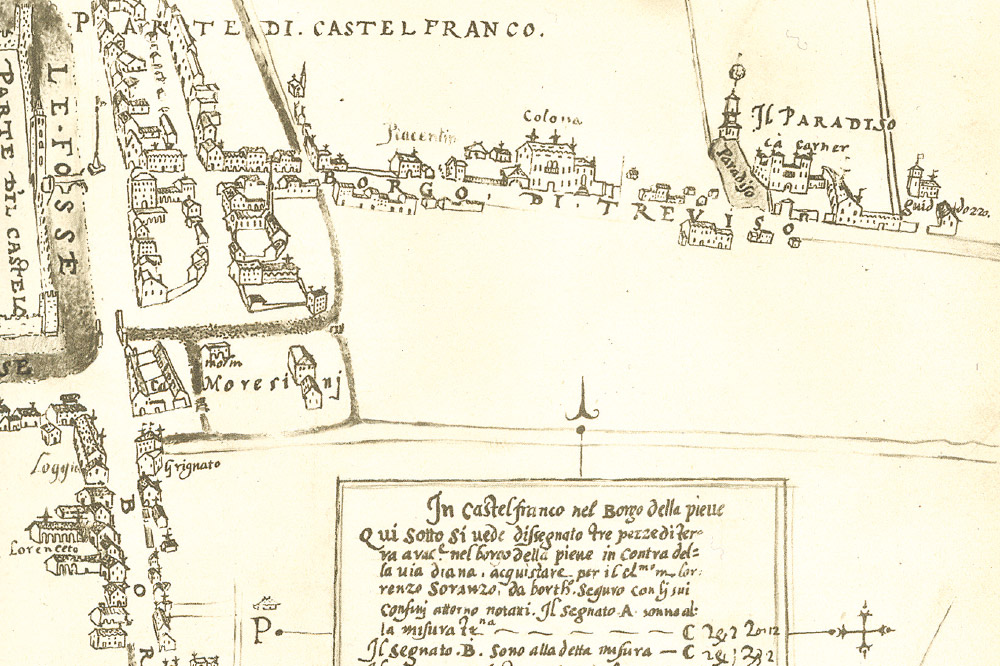 PARTE DI. CASTELFRANCO.
LE. FOSSE
PARTE DEL CASTELO
SE
Piacentin
Colona
Il PARADISO
cà corner
Paradiso
guidozzo.
BORGO DI TREVISO
morm
Ca Moresinj
Loggia
Grignato
Lorenceto
B
O
R
P
In Castelfranco nel Borgo della pieve
Qui sotto si vede dissegnato tre pezze di ter-
nel borgo della pieve in Contra del-
la via diana, acquistare per il cl.mo m. lor:
renzo Soranzo, da borth. Seguro con li sui
Confini attorno notati. Il segnato A sonno al-
la misura
Il segnato .B. sono alla detta misura — C